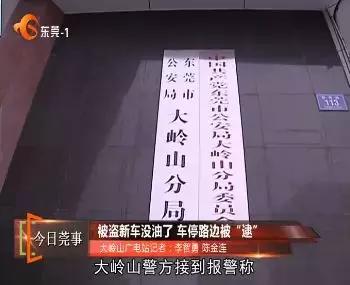 东莞-1
东莞市
公安局
大岭山分局
中国共产党东莞市公安局大岭山分局委员会
113
今日莞事
被盗新车没油了 车停路边被“逮”
大岭山广电站记者：李智勇 陈金连
大岭山警方接到报警称